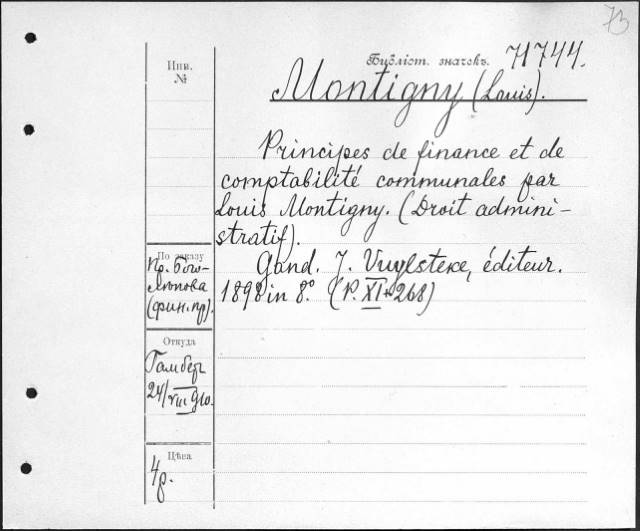 73
Инв.
№
Библіот. значокъ. 71744.
Montigny (Louis).
Principes de finance et de
comptabilité communales par
Louis Montigny. (Droit admini-
stratif).
Gand. J. Vuylsteke, éditeur.
1898 in 8.° (P. XI + 268)
По заказу
Пр. Бого-
лѣпова
(фин. пр).
Откуда
Гамберъ
24/VIII 910.
Цѣна
4 р.